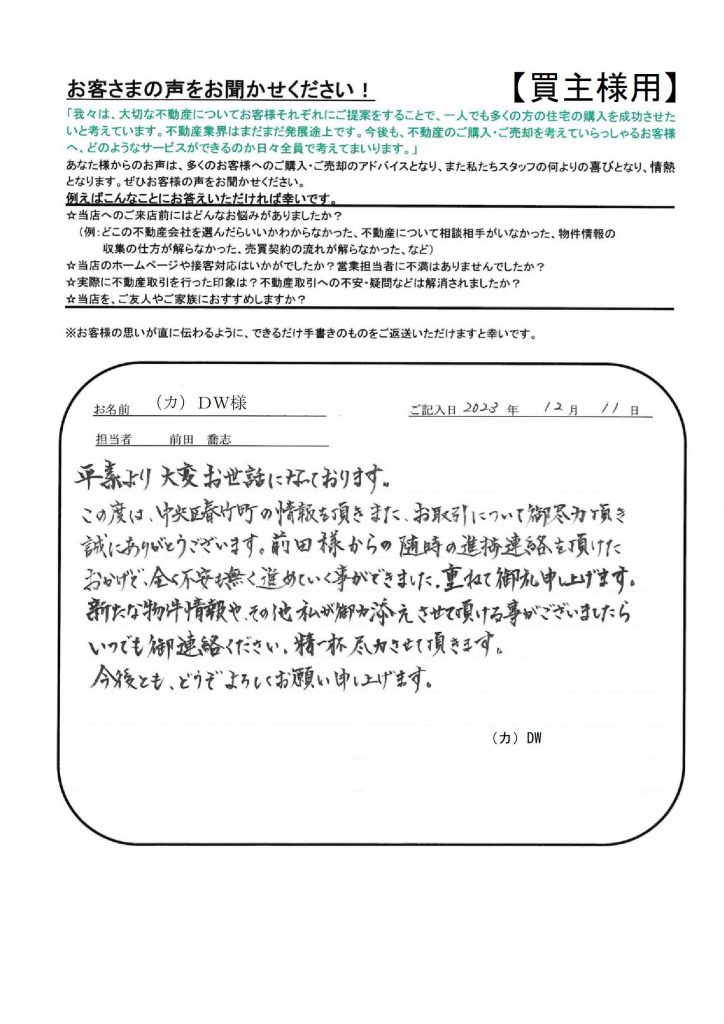 お客さまの声をお聞かせください！
【買主様用】
「我々は、大切な不動産についてお客様それぞれにご提案をすることで、一人でも多くの方の住宅の購入を成功させた
いと考えています。不動産業界はまだまだ発展途上です。今後も、不動産のご購入・ご売却を考えていらっしゃるお客様
へ、どのようなサービスができるのか日々全員で考えてまいります。」
あなた様からのお声は、多くのお客様へのご購入・ご売却のアドバイスとなり、また私たちスタッフの何よりの喜びとなり、情熱
となります。ぜひお客様の声をお聞かせください。
例えばこんなことにお答えいただければ幸いです。
☆当店へのご来店前にはどんなお悩みがありましたか？
（例：どこの不動産会社を選んだらいいかわからなかった、不動産について相談相手がいなかった、物件情報の
収集の仕方が解らなかった、売買契約の流れが解らなかった、など）
☆当店のホームページや接客対応はいかがでしたか？営業担当者に不満はありませんでしたか？
☆実際に不動産取引を行った印象は？不動産取引への不安・疑問などは解消されましたか？
☆当店を、ご友人やご家族におすすめしますか？
※お客様の思いが直に伝わるように、できるだけ手書きのものをご返送いただけますと幸いです。
お名前 （カ）DW様 ご記入日 2023 年 12 月 11 日
担当者 前田 喬志
平素より大変お世話になっております。
この度は、中央区春竹町の情報を頂きまた、お取引について御尽力頂き
誠にありがとうございます。前田様からの随時の進捗連絡を頂けた
おかげで、全く不安も無く進めていく事ができました。重ねて御礼申し上げます。
新たな物件情報や、その他私が御力添えさせて頂ける事がございましたら
いつでも御連絡ください。精一杯尽力させて頂きます。
今後とも、どうぞよろしくお願い申し上げます。
（カ）DW